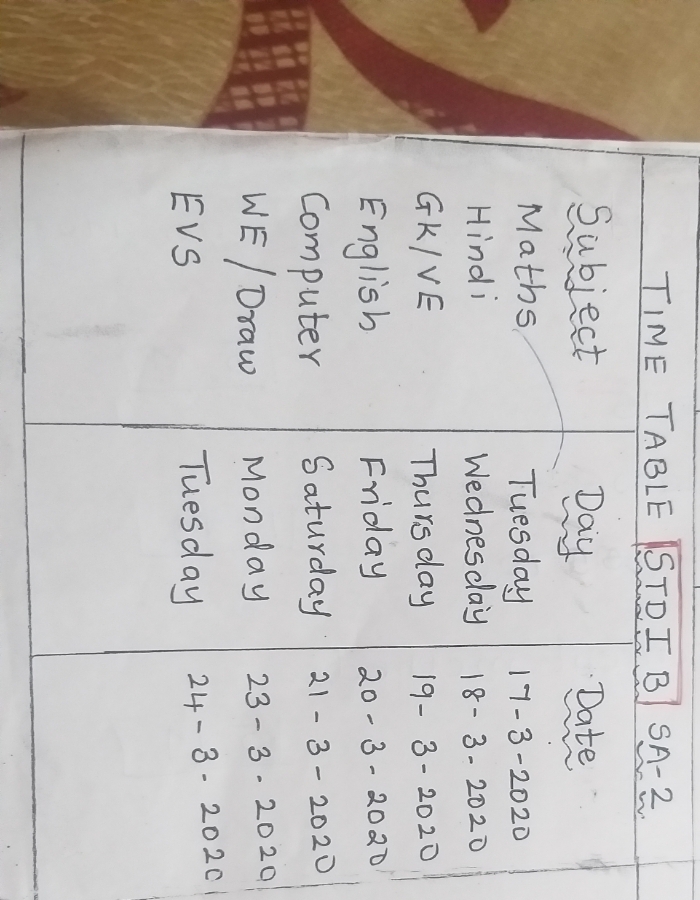 TIME TABLE STD I B SA-2
Subject Day Date
Maths Tuesday 17-3-2020
Hindi Wednesday 18-3-2020
GK/VE Thursday 19-3-2020
English Friday 20-3-2020
Computer Saturday 21-3-2020
WE/Draw Monday 23-3-2020
EVS Tuesday 24-3-2020